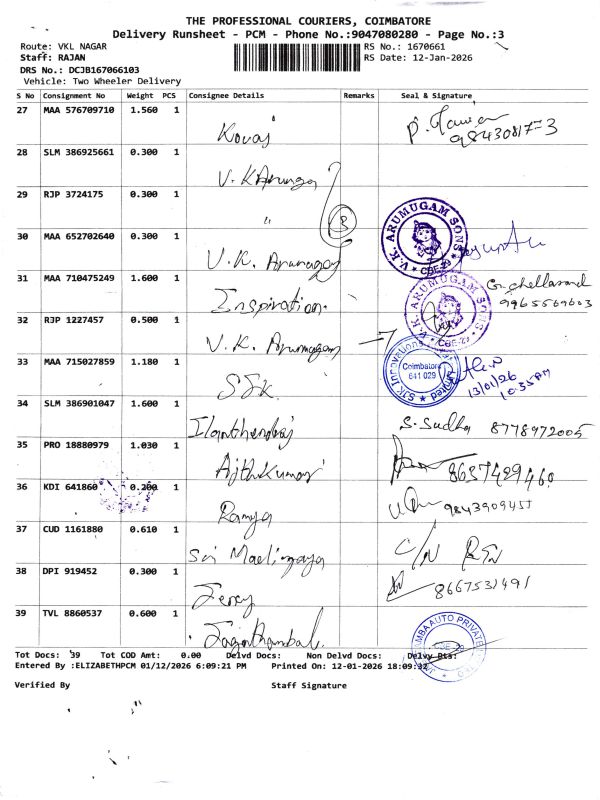 THE PROFESSIONAL COURIERS, COIMBATORE
Delivery Runsheet - PCM - Phone No.:9047080280 - Page No.:3
Route: VKL NAGAR
RS No.: 1670661
Staff: RAJAN
RS Date: 12-Jan-2026
DRS No.: DCJB167066103
Vehicle: Two Wheeler Delivery
S No Consignment No Weight PCS Consignee Details Remarks Seal & Signature
27 MAA 576709710 1.560 1 Kovai
28 SLM 386925661 0.300 1
29 RJP 3724175 0.300 1 "
3
30 MAA 652702640 0.300 1 V.K. V.K. ARUMUGAM SONS CBE-29
31 MAA 710475249 1.600 1 Inspiration. V.K. ARUMUGAM SONS CBE-29 9965569603
32 RJP 1227457 0.500 1 V.K. Arumugam
33 MAA 715027859 1.180 1 SJK. SJK Innovations Coimbatore 641 029 13/01/26 10:35 AM
34 SLM 386901047 1.600 1 S. Sudha 8778972005
35 PRO 18880979 1.030 1 Ajithkumar 8637429460
36 KDI 641860 0.200 1 Ramya
37 CUD 1161880 0.610 1 Sri C/N RTN
38 DPI 919452 0.300 1 Jercy
39 TVL 8860537 0.600 1 AUTO PRIVATE
Tot Docs: 39 Tot COD Amt: 0.00 Delvd Docs: Non Delvd Docs: Delvy Pts:
Entered By :ELIZABETHPCM 01/12/2026 6:09:21 PM Printed On: 12-01-2026 18:09:32
Verified By Staff Signature